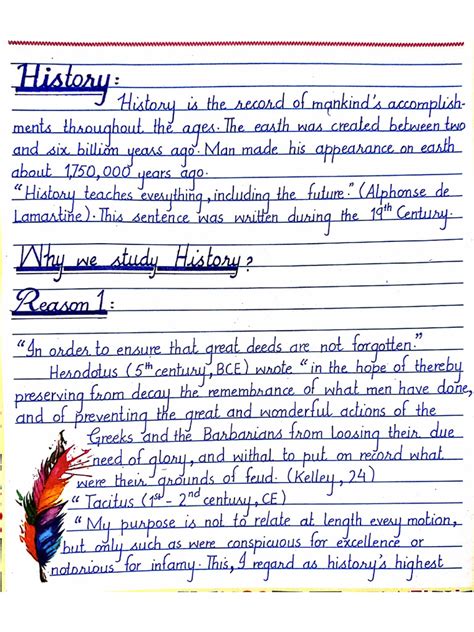 History:
History is the record of mankind's accomplish-
ments throughout the ages. The earth was created between two
and six billion years ago. Man made his appearance on earth
about 1,750,000 years ago.
"History teaches everything, including the future." (Alphonse de
Lamartine). This sentence was written during the 19th Century.
Why we study History?
Reason 1:
"In order to ensure that great deeds are not forgotten."
Herodotus (5th century, BCE) wrote "in the hope of thereby
preserving from decay the remembrance of what men have done,
and of preventing the great and wonderful actions of the
Greeks and the Barbarians from loosing their due
need of glory, and withal to put on record what
were their grounds of feud. (Kelley, 24)
"Tacitus (1st - 2nd century, CE)
"My purpose is not to relate at length every motion,
but only such as were conspicuous for excellence or
notorious for infamy. This, I regard as history's highest